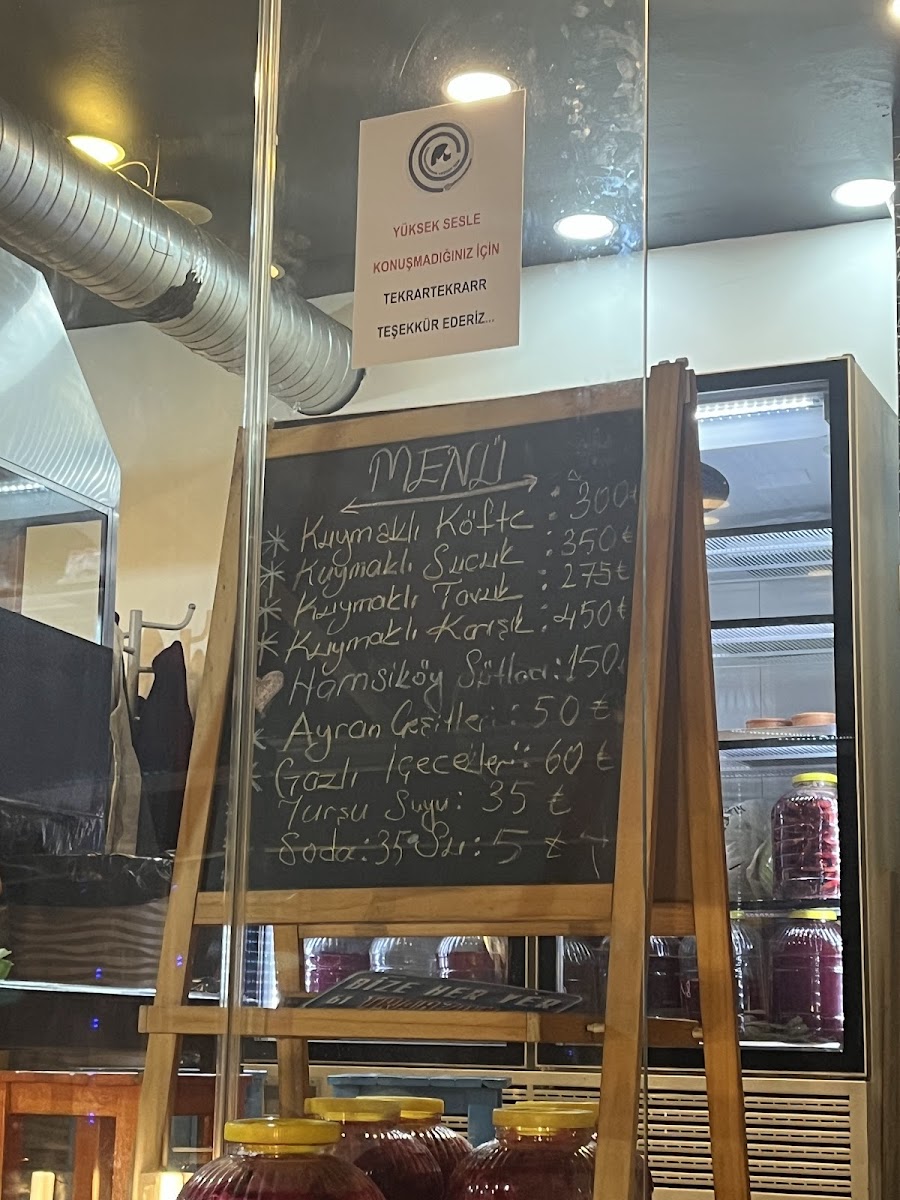 YÜKSEK SESLE
KONUŞMADIĞINIZ İÇİN
TEKRARTEKRARR
TEŞEKKÜR EDERİZ...
MENÜ
* Kuymaklı Köfte : 300₺
* Kuymaklı Sucuk : 350₺
* Kuymaklı Tavuk : 275₺
* Kuymaklı Karışık : 450₺
Hamsiköy Sütlacı : 150
Ayran Çeşitleri : 50 ₺
Gazlı İçecekleri : 60 ₺
Turşu Suyu : 35 ₺
Soda : 35 Su : 5 ₺
BİZE HER YER
61